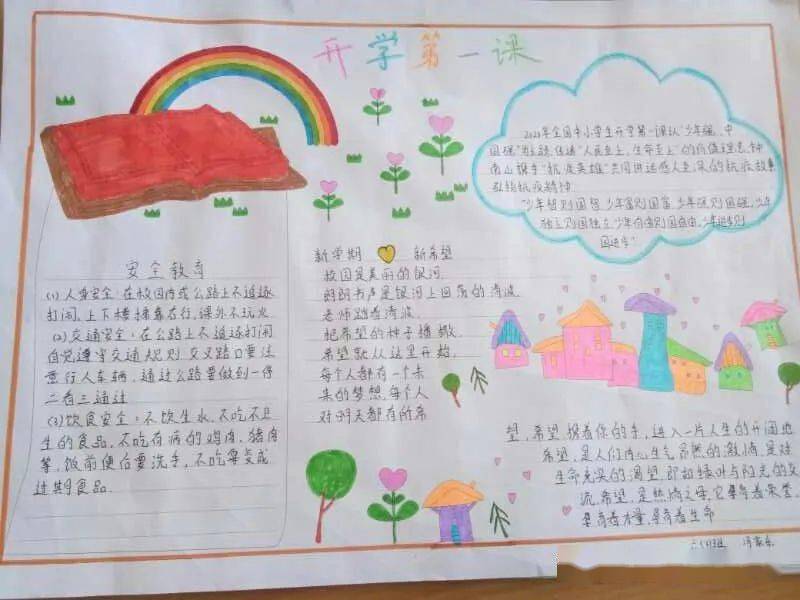 开学第一课
年全国中小学生开学第一课以"少年强、中
国强"为主题传递"人民至上,生命至上"的价值理念,钟
南山携手"抗疫英雄"共同讲述感人至深的抗疫故事
弘扬抗疫精神
"少年智则国智,少年富则国富,少年强则国强,少年
独立则国独立,少年自由则国自由,少年进步则
国进步"
安全教育
(1)人身安全:在校园内或公路上不追逐
打闹,上下楼梯靠右行,课外不玩火
(2)交通安全:在公路上不追逐打闹
自觉遵守交通规则,交叉路口要注
意行人车辆,通过公路要做到一停
二看三通过
(3)饮食安全:不饮生水,不吃不卫
生的食品,不吃有病的鸡肉,猪肉
等,饭前便后要洗手,不吃变或
过期食品.
新学期 新希望
校园是美丽的银河
朗朗书声是银河上回荡的清波
老师踏着清波
把希望的种子播撒
希望就从这里开始,
每个人都有一个未
来的梦想,每个人
对明天都有所希
望,希望携着你的手,进入一片人生的开阔地
希望,是人们内心生气昂然的激情,是对
生命充实的渴望,即如绿叶与阳光的交
流.希望,是热情之母,它孕育着荣誉,
孕育着力量,孕育着生命